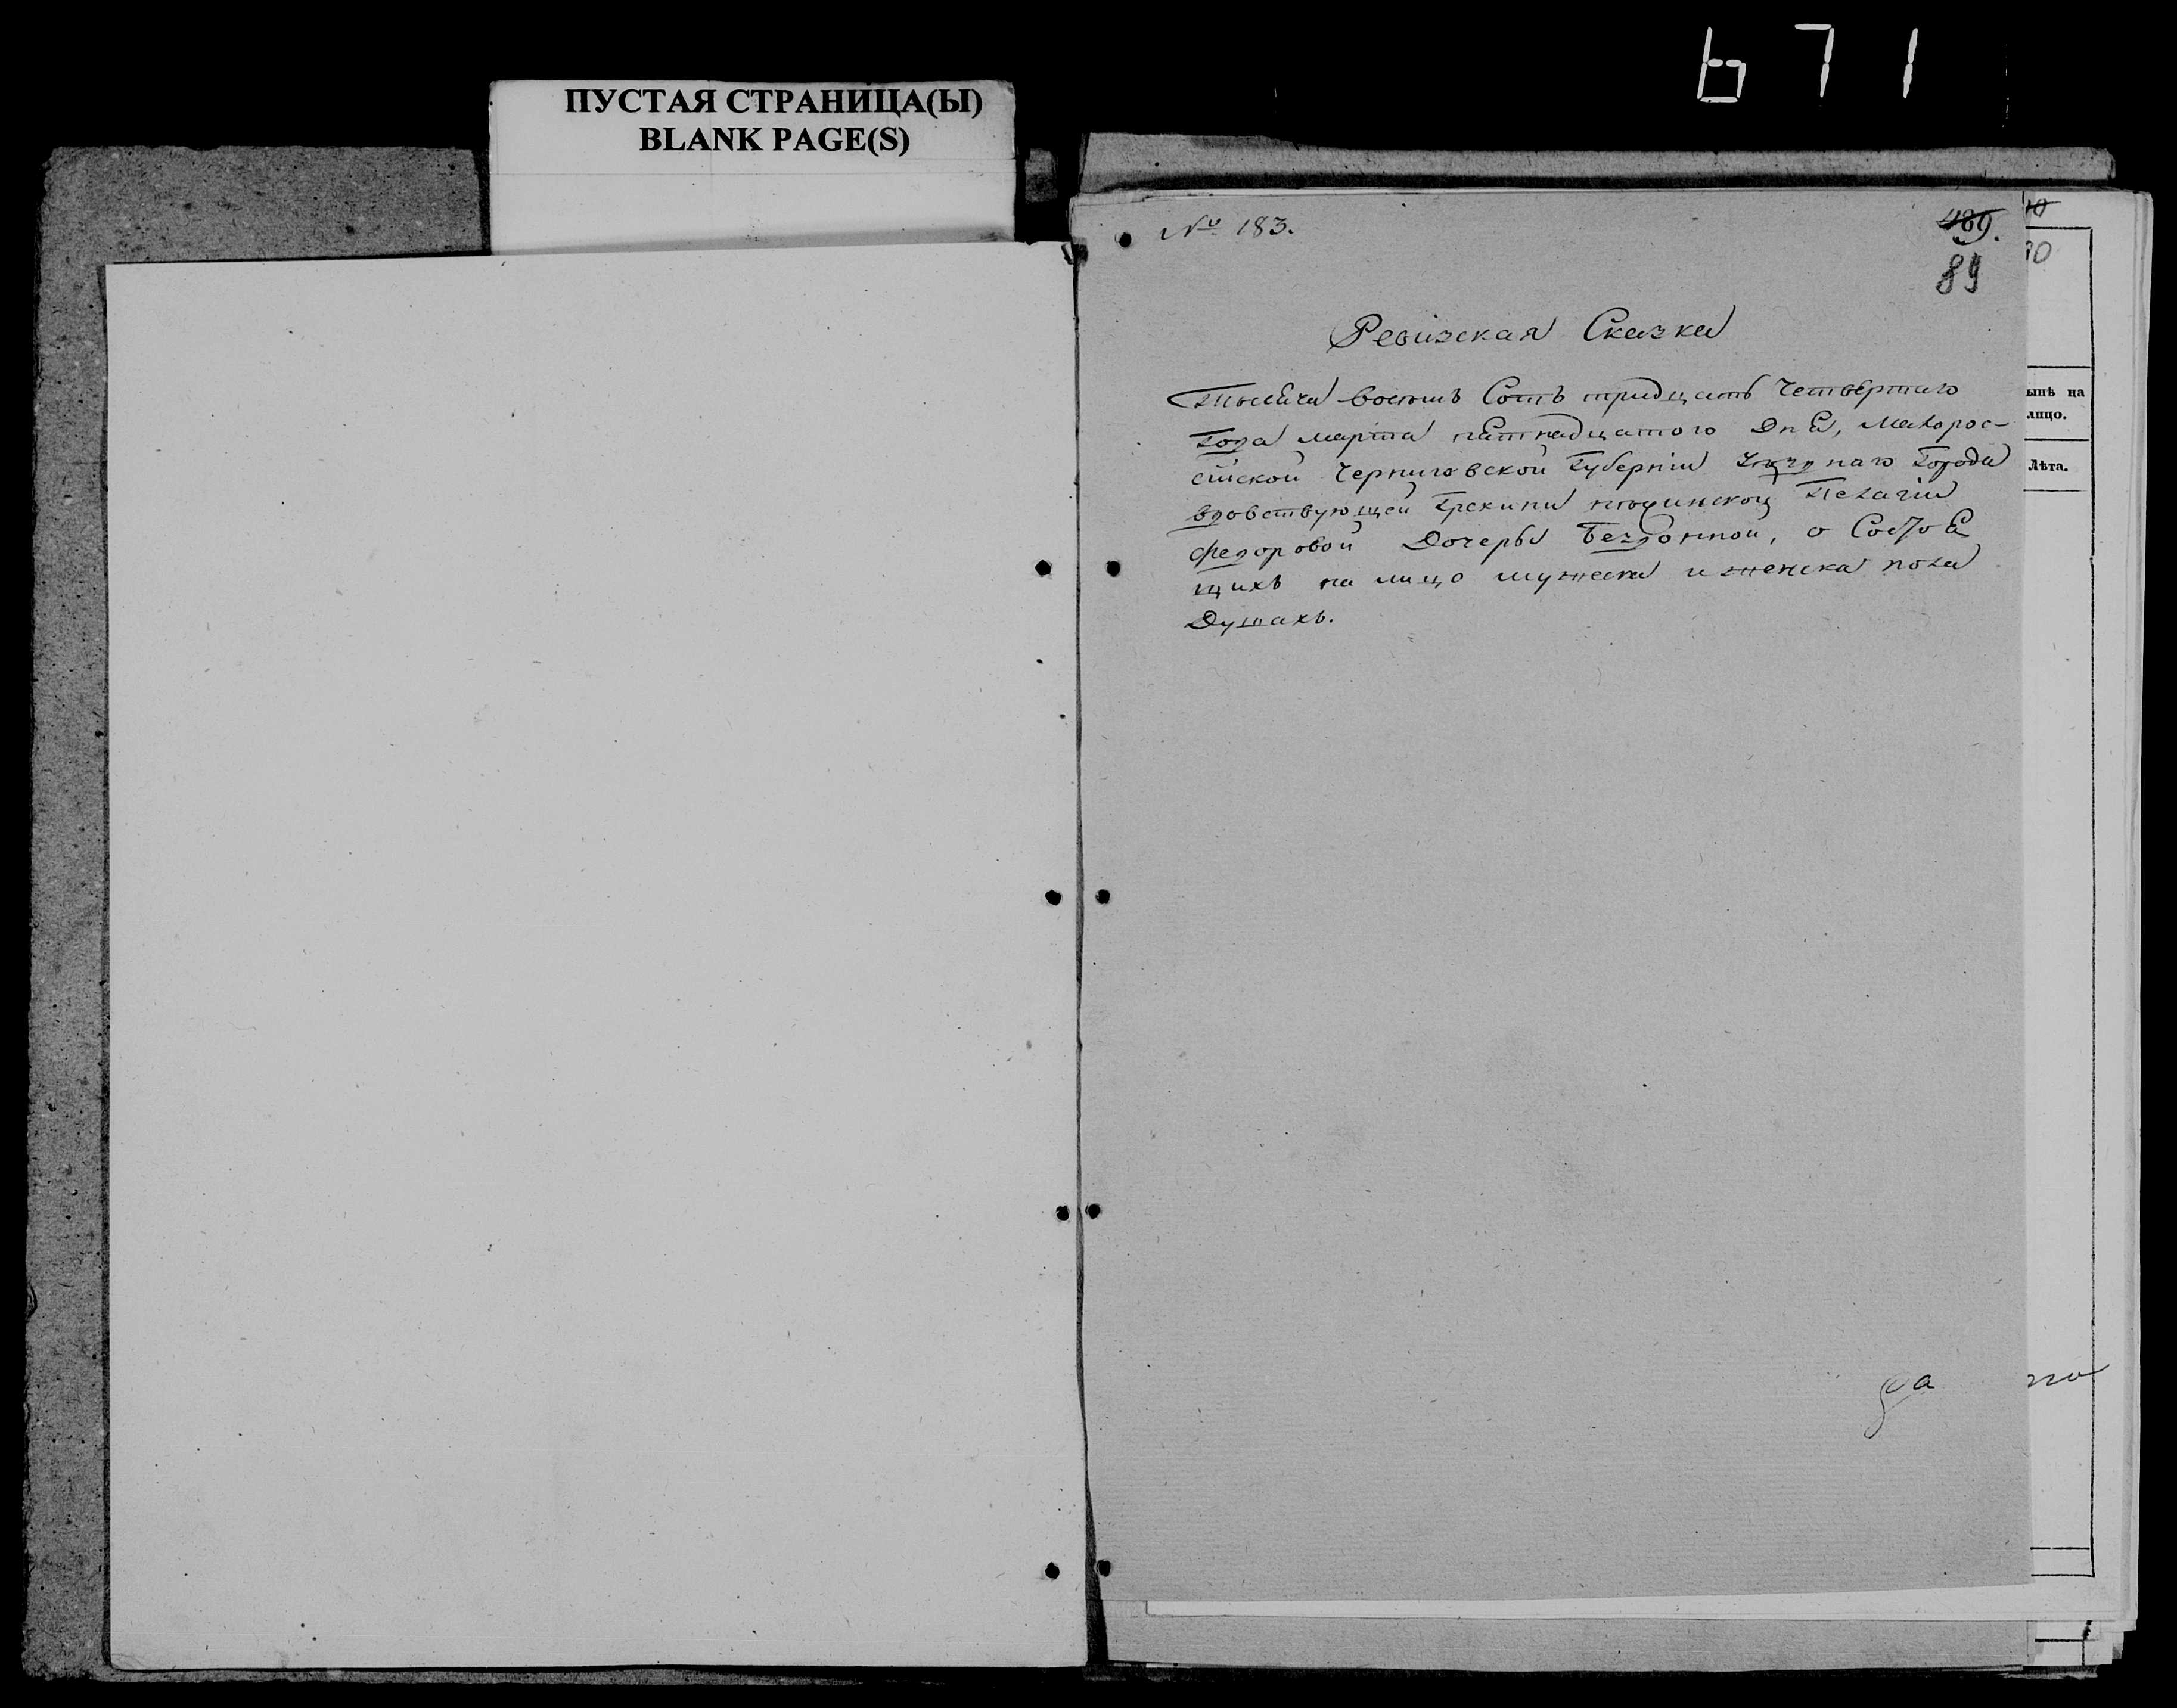 671
ПУСТАЯ СТРАНИЦА(Ы)
BLANK PAGE(S)
№ 183.
489.
89
90
Ревизская Сказка
Тысяча восемь Сотъ тридцать Четвертаго
Года марта пятнадцатого Дня, Малорос-
сійской Черниговской Губерніи Города
вдовствующей Грекини нѣжинской Пелагіи
Федоровой Дочери Бездонной, о Состоя
щихъ на лицо мужеска и женска пола
Душахъ.
ынѣ на
лицо.
Лѣта.